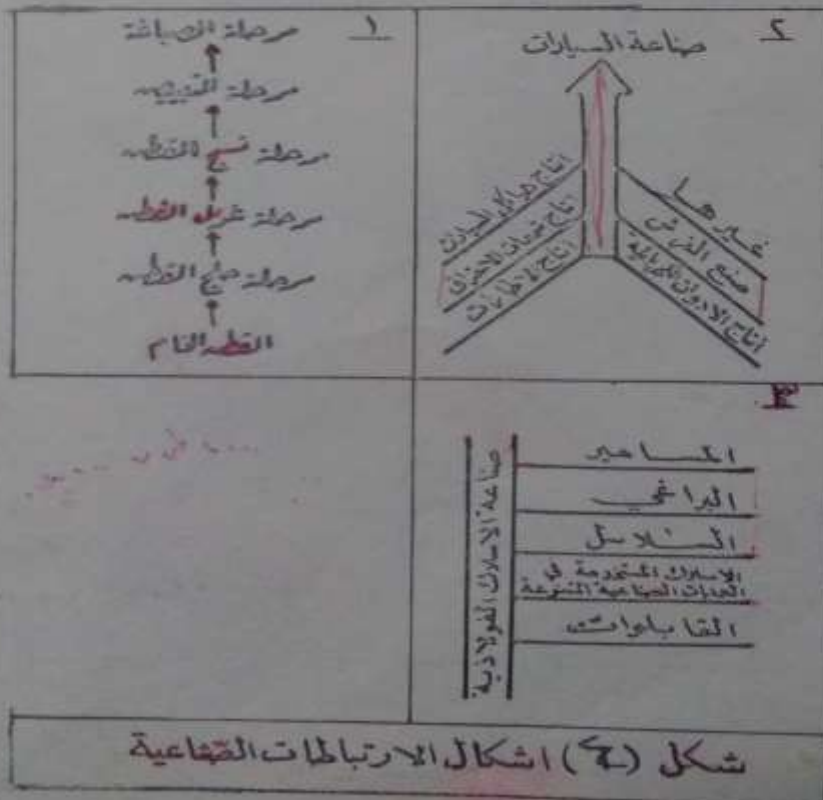 ١
مرحلة الصباغة
مرحلة التبييض
مرحلة نسج القطن
مرحلة غزل القطن
مرحلة حلج القطن
القطن الخام
٢
صناعة السيارات
انتاج هياكل السيارات
انتاج محركات الاحتراق
انتاج الاطارات
غيرها
صنع الفرش
انتاج الادوات الكهربائية
٣
صناعة الاسلاك الفولاذية
المسامير
البراغي
السلاسل
الاسلاك المستخدمة في
المعدات الصناعية المتنوعة
القابلوات
شكل ( ) اشكال الارتباطات الصناعية